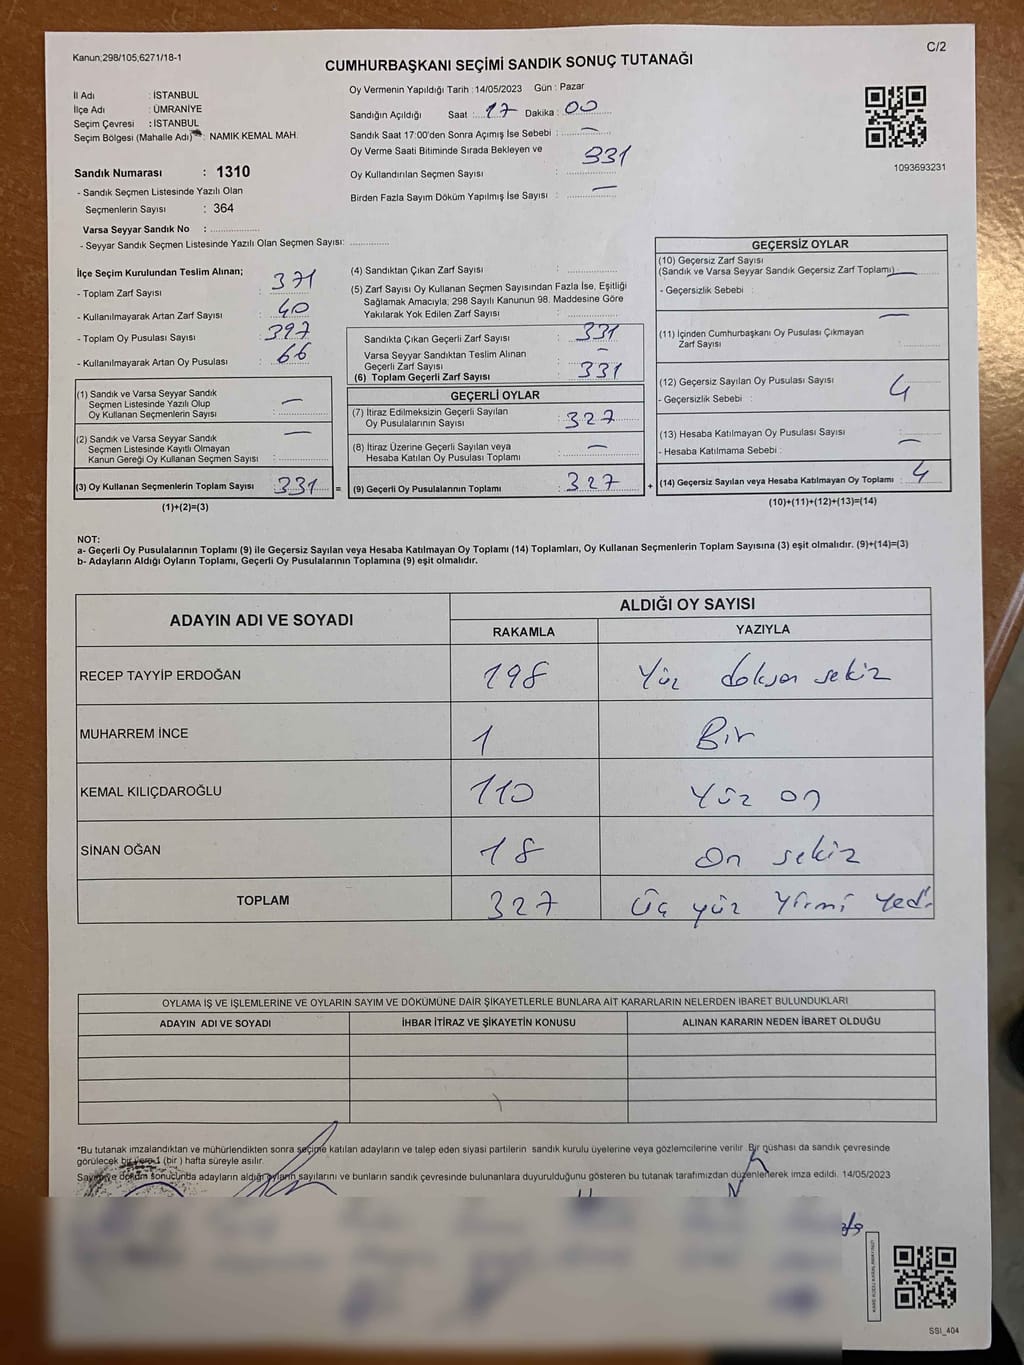 Kanun;298/105,6271/18-1
C/2
CUMHURBAŞKANI SEÇİMİ SANDIK SONUÇ TUTANAĞI
İl Adı : İSTANBUL
İlçe Adı : ÜMRANİYE
Seçim Çevresi : İSTANBUL
Seçim Bölgesi (Mahalle Adı) : NAMIK KEMAL MAH.
Sandık Numarası : 1310
- Sandık Seçmen Listesinde Yazılı Olan
Seçmenlerin Sayısı : 364
Varsa Seyyar Sandık No :
- Seyyar Sandık Seçmen Listesinde Yazılı Olan Seçmen Sayısı:
Oy Vermenin Yapıldığı Tarih : 14/05/2023 Gün : Pazar
Sandığın Açıldığı Saat : 17 Dakika : 00
Sandık Saat 17:00'den Sonra Açımış İse Sebebi : —
Oy Verme Saati Bitiminde Sırada Bekleyen ve
Oy Kullandırılan Seçmen Sayısı : 331
Birden Fazla Sayım Döküm Yapılmış İse Sayısı : —
1093693231
İlçe Seçim Kurulundan Teslim Alınan;
- Toplam Zarf Sayısı : 371
- Kullanılmayarak Artan Zarf Sayısı : 40
- Toplam Oy Pusulası Sayısı : 397
- Kullanılmayarak Artan Oy Pusulası : 66
(1) Sandık ve Varsa Seyyar Sandık
Seçmen Listesinde Yazılı Olup
Oy Kullanan Seçmenlerin Sayısı : —
(2) Sandık ve Varsa Seyyar Sandık
Seçmen Listesinde Kayıtlı Olmayan
Kanun Gereği Oy Kullanan Seçmen Sayısı : —
(3) Oy Kullanan Seçmenlerin Toplam Sayısı : 331 =
(1)+(2)=(3)
(4) Sandıktan Çıkan Zarf Sayısı :
(5) Zarf Sayısı Oy Kullanan Seçmen Sayısından Fazla İse, Eşitliği
Sağlamak Amacıyla; 298 Sayılı Kanunun 98. Maddesine Göre
Yakılarak Yok Edilen Zarf Sayısı :
Sandıkta Çıkan Geçerli Zarf Sayısı : 331
Varsa Seyyar Sandıktan Teslim Alınan
Geçerli Zarf Sayısı : —
(6) Toplam Geçerli Zarf Sayısı : 331
GEÇERLİ OYLAR
(7) İtiraz Edilmeksizin Geçerli Sayılan
Oy Pusulalarının Sayısı : 327
(8) İtiraz Üzerine Geçerli Sayılan veya
Hesaba Katılan Oy Pusulası Toplamı : —
(9) Geçerli Oy Pusulalarının Toplamı : 327 +
GEÇERSİZ OYLAR
(10) Geçersiz Zarf Sayısı
(Sandık ve Varsa Seyyar Sandık Geçersiz Zarf Toplamı) —
- Geçersizlik Sebebi :
(11) İçinden Cumhurbaşkanı Oy Pusulası Çıkmayan
Zarf Sayısı : —
(12) Geçersiz Sayılan Oy Pusulası Sayısı : 4
- Geçersizlik Sebebi :
(13) Hesaba Katılmayan Oy Pusulası Sayısı : —
- Hesaba Katılmama Sebebi :
(14) Geçersiz Sayılan veya Hesaba Katılmayan Oy Toplamı : 4
(10)+(11)+(12)+(13)=(14)
NOT:
a- Geçerli Oy Pusulalarının Toplamı (9) ile Geçersiz Sayılan veya Hesaba Katılmayan Oy Toplamı (14) Toplamları, Oy Kullanan Seçmenlerin Toplam Sayısına (3) eşit olmalıdır. (9)+(14)=(3)
b- Adayların Aldığı Oyların Toplamı, Geçerli Oy Pusulalarının Toplamına (9) eşit olmalıdır.
ADAYIN ADI VE SOYADI
ALDIĞI OY SAYISI
RAKAMLA YAZIYLA
RECEP TAYYİP ERDOĞAN 198 Yüz doksan sekiz
MUHARREM İNCE 1 Bir
KEMAL KILIÇDAROĞLU 110 Yüz on
SİNAN OĞAN 18 On sekiz
TOPLAM 327 Üç yüz Yirmi Yedi
OYLAMA İŞ VE İŞLEMLERİNE VE OYLARIN SAYIM VE DÖKÜMÜNE DAİR ŞİKAYETLERLE BUNLARA AİT KARARLARIN NELERDEN İBARET BULUNDUKLARI
ADAYIN ADI VE SOYADI İHBAR İTİRAZ VE ŞİKAYETİN KONUSU ALINAN KARARIN NEDEN İBARET OLDUĞU
*Bu tutanak imzalandıktan ve mühürlendikten sonra seçime katılan adayların ve talep eden siyasi partilerin sandık kurulu üyelerine veya gözlemcilerine verilir. Bir nüshası da sandık çevresinde
görülecek bir yere 1 (bir ) hafta süreyle asılır.
Sayım ve döküm sonucunda adayların aldığı oyların sayılarını ve bunların sandık çevresinde bulunanlara duyurulduğunu gösteren bu tutanak tarafımızdan düzenlenerek imza edildi. 14/05/2023
SSI_404